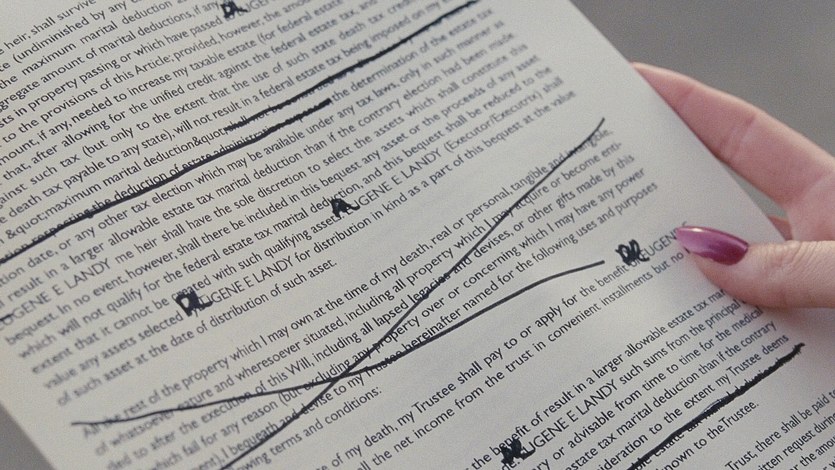 heir, shall survive
te (undiminished by any
the maximum marital deduction
gregate amount of marital deductions, if any
sts in property passing or which have passed EUGENE
to the provisions of this Article; provided, however, the amount
mount, if any, needed to increase my taxable estate (for federal estate
that, after allowing for the unified credit against the federal estate tax, and
ainst such tax (but only to the extent that the use of such state death tax credit
e death tax payable to any state), will not result in a federal estate tax being imposed on my
&quot;maximum marital deduction&quot; the determination of the estate
the deduction of estate
tion date, or any other tax election which may be available under any tax laws, only in such manner as
l result in a larger allowable estate tax marital deduction than if the contrary election had been made.
UGENE E LANDY me heir shall have the sole discretion to select the assets which shall constitute this
bequest. In no event, however, shall there be included in this bequest any asset or the proceeds of any asset
which will not qualify for the federal estate tax marital deduction, and this bequest shall be reduced to the
extent that it cannot be created with such qualifying assets. EUGENE E LANDY (Executor/Executrix) shall
value any assets selected EUGENE E LANDY for distribution in kind as a part of this bequest at the value
of such asset at the date of distribution of such asset.
All the rest of the property which I may own at the time of my death, real or personal, tangible and intangible,
of whatsoever nature and wheresoever situated, including all property which I may acquire or become enti-
tled to after the execution of this Will, including all lapsed legacies and devises, or other gifts made by this
which fail for any reason (but excluding any property over or concerning which I may have any power
ment), I bequeath and devise to my Trustee hereinafter named for the following uses and purposes
wing terms and conditions:
e of my death, my Trustee shall pay to or apply for the benefit of EUGENE
all the net income from the trust in convenient installments but no
the benefit of result in a larger allowable estate tax
EUGENE E LANDY such sums from the principal
ry or advisable from time to time for the medical
estate tax marital deduction than if the contrary
sideration to the extent my Trustee deems
nown to the Trustee.
Trust, there shall be paid